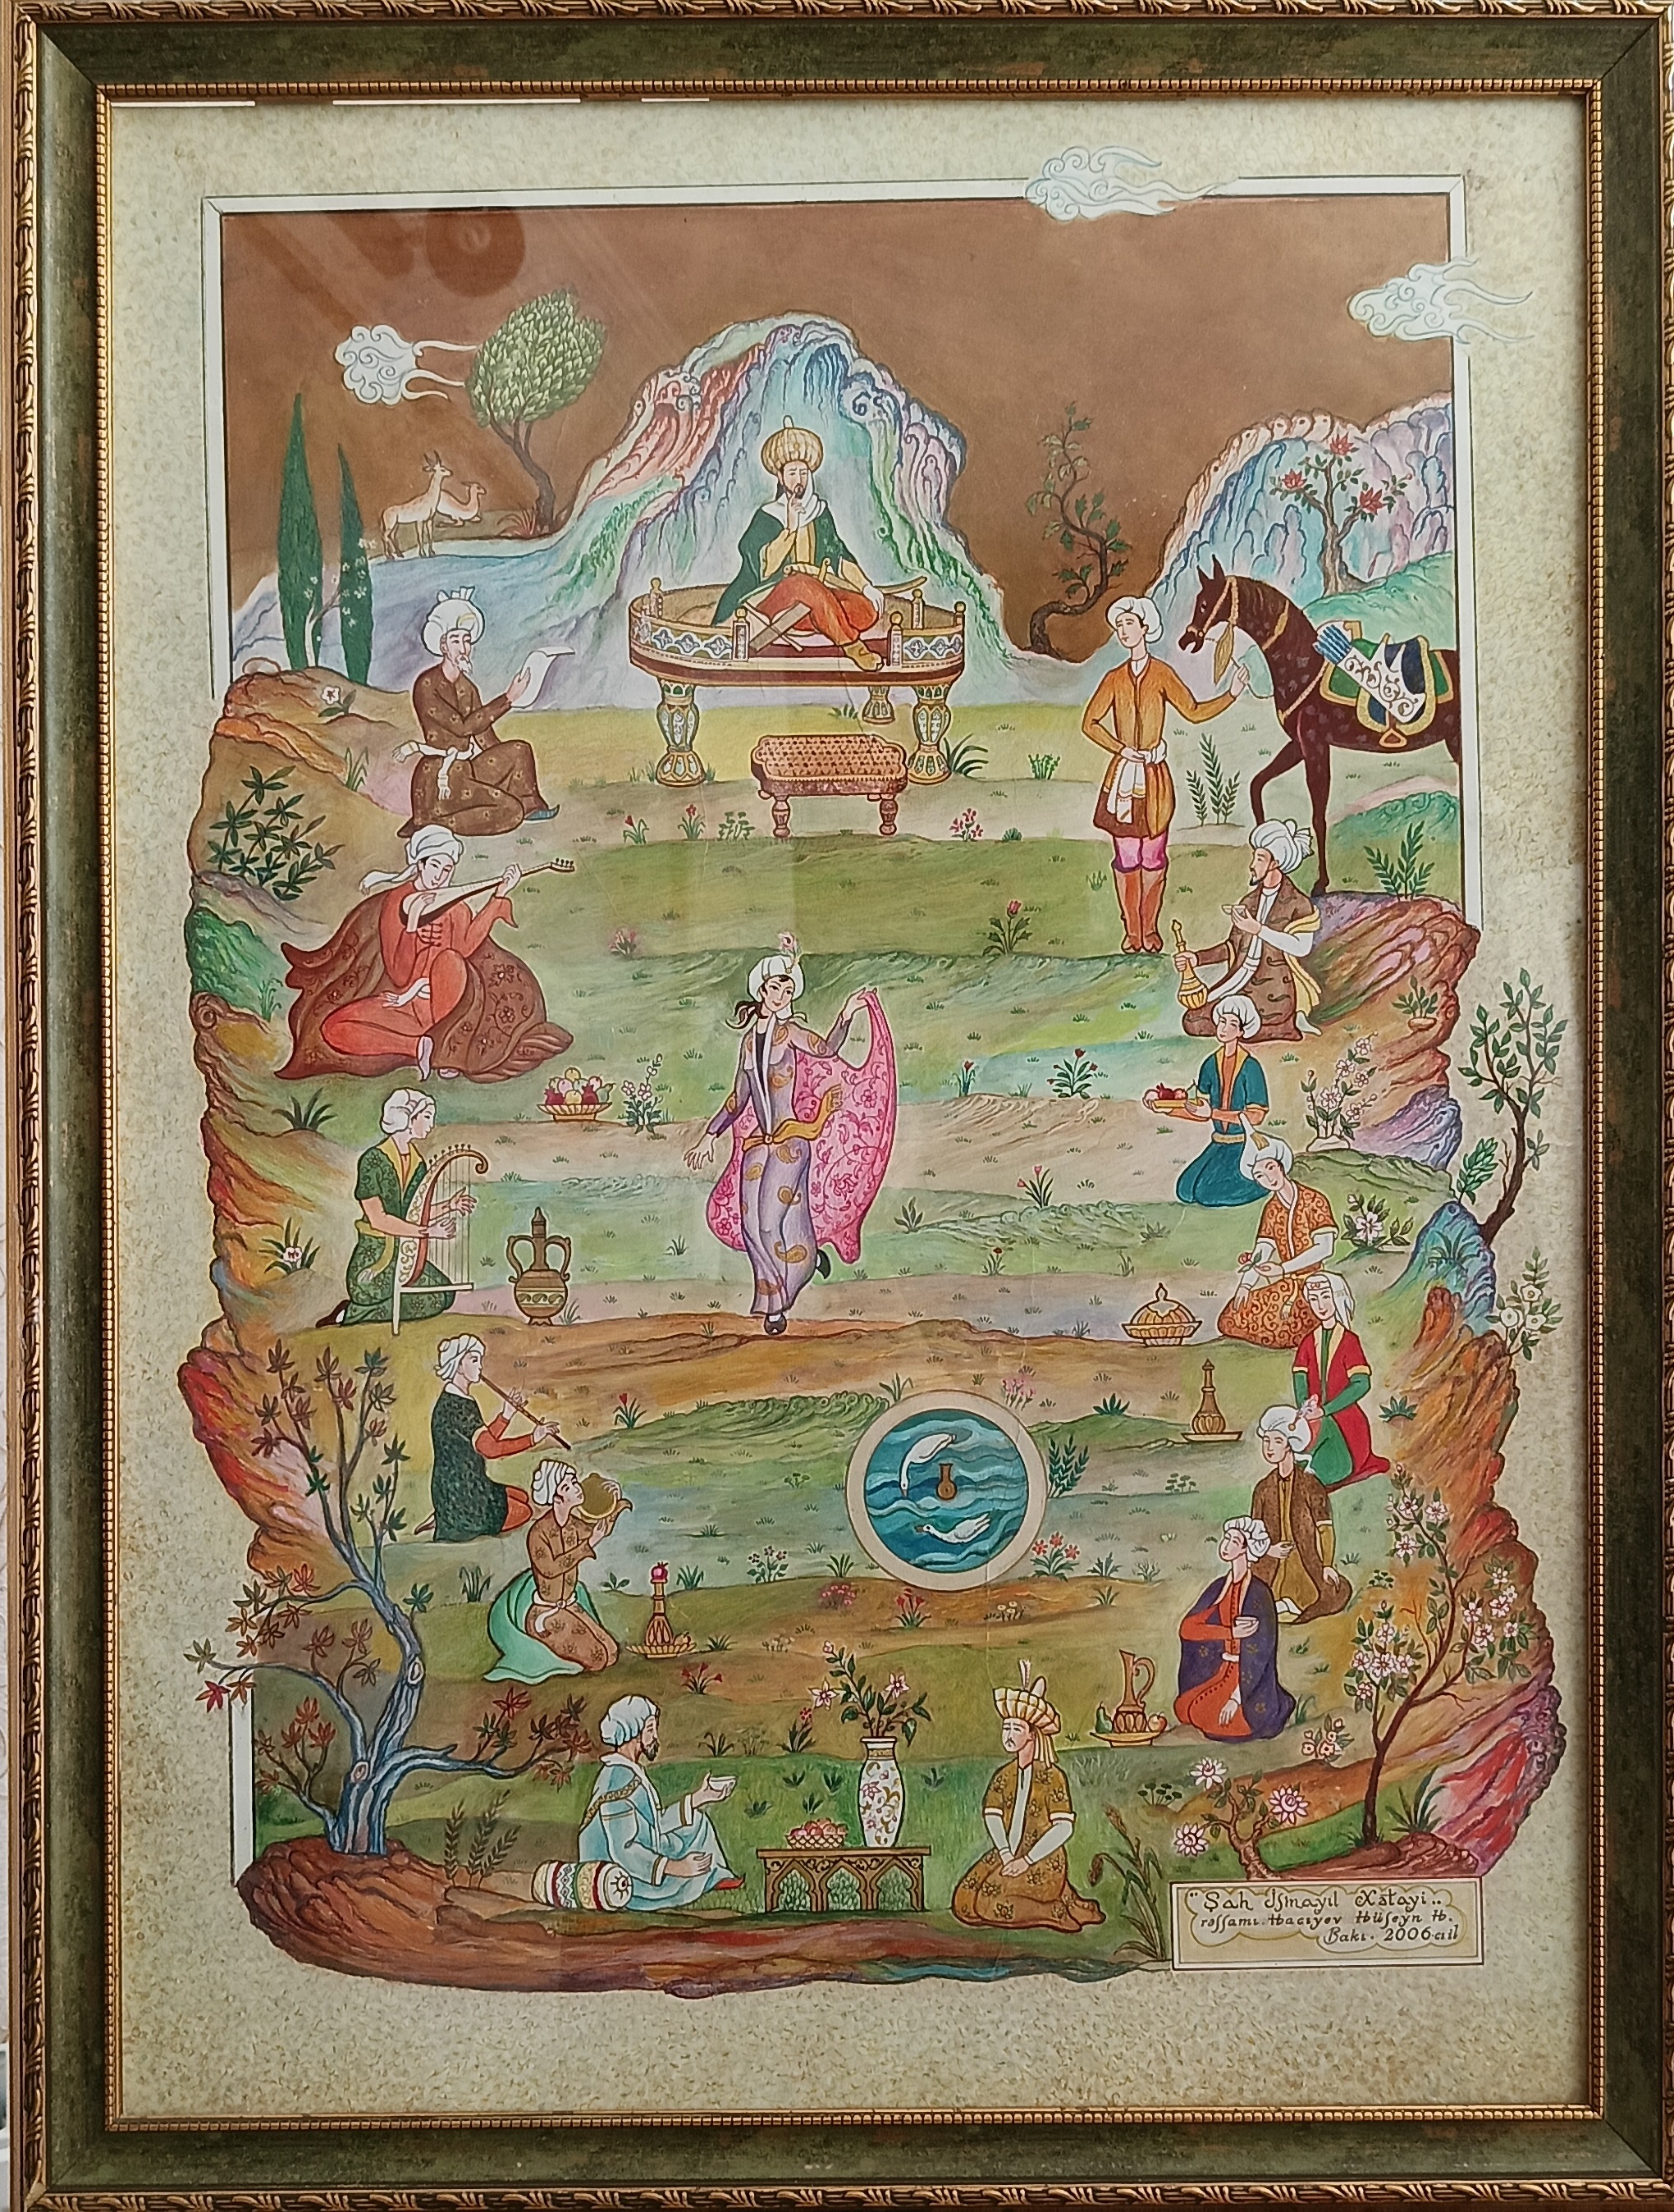 "Şah İsmayıl Xətayi"
rəssamı. Hacıyev Hüseyn H.
Bakı. 2006.cıl